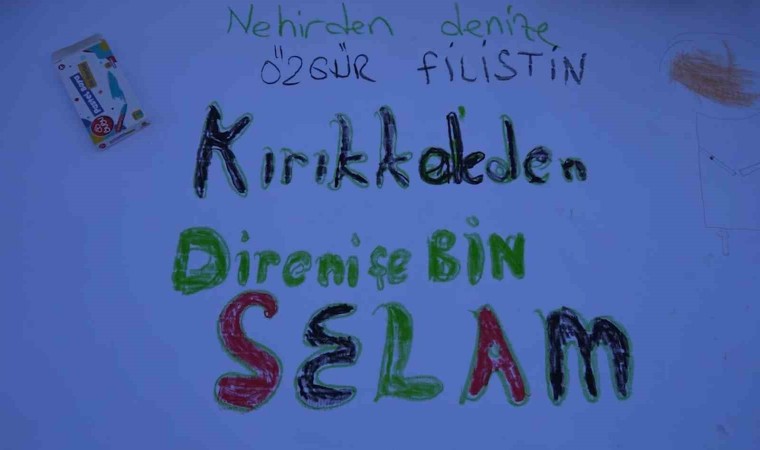 Nehirden denize
ÖZGÜR FİLİSTİN
Kırıkkaleden
Direnişe BİN
SELAM